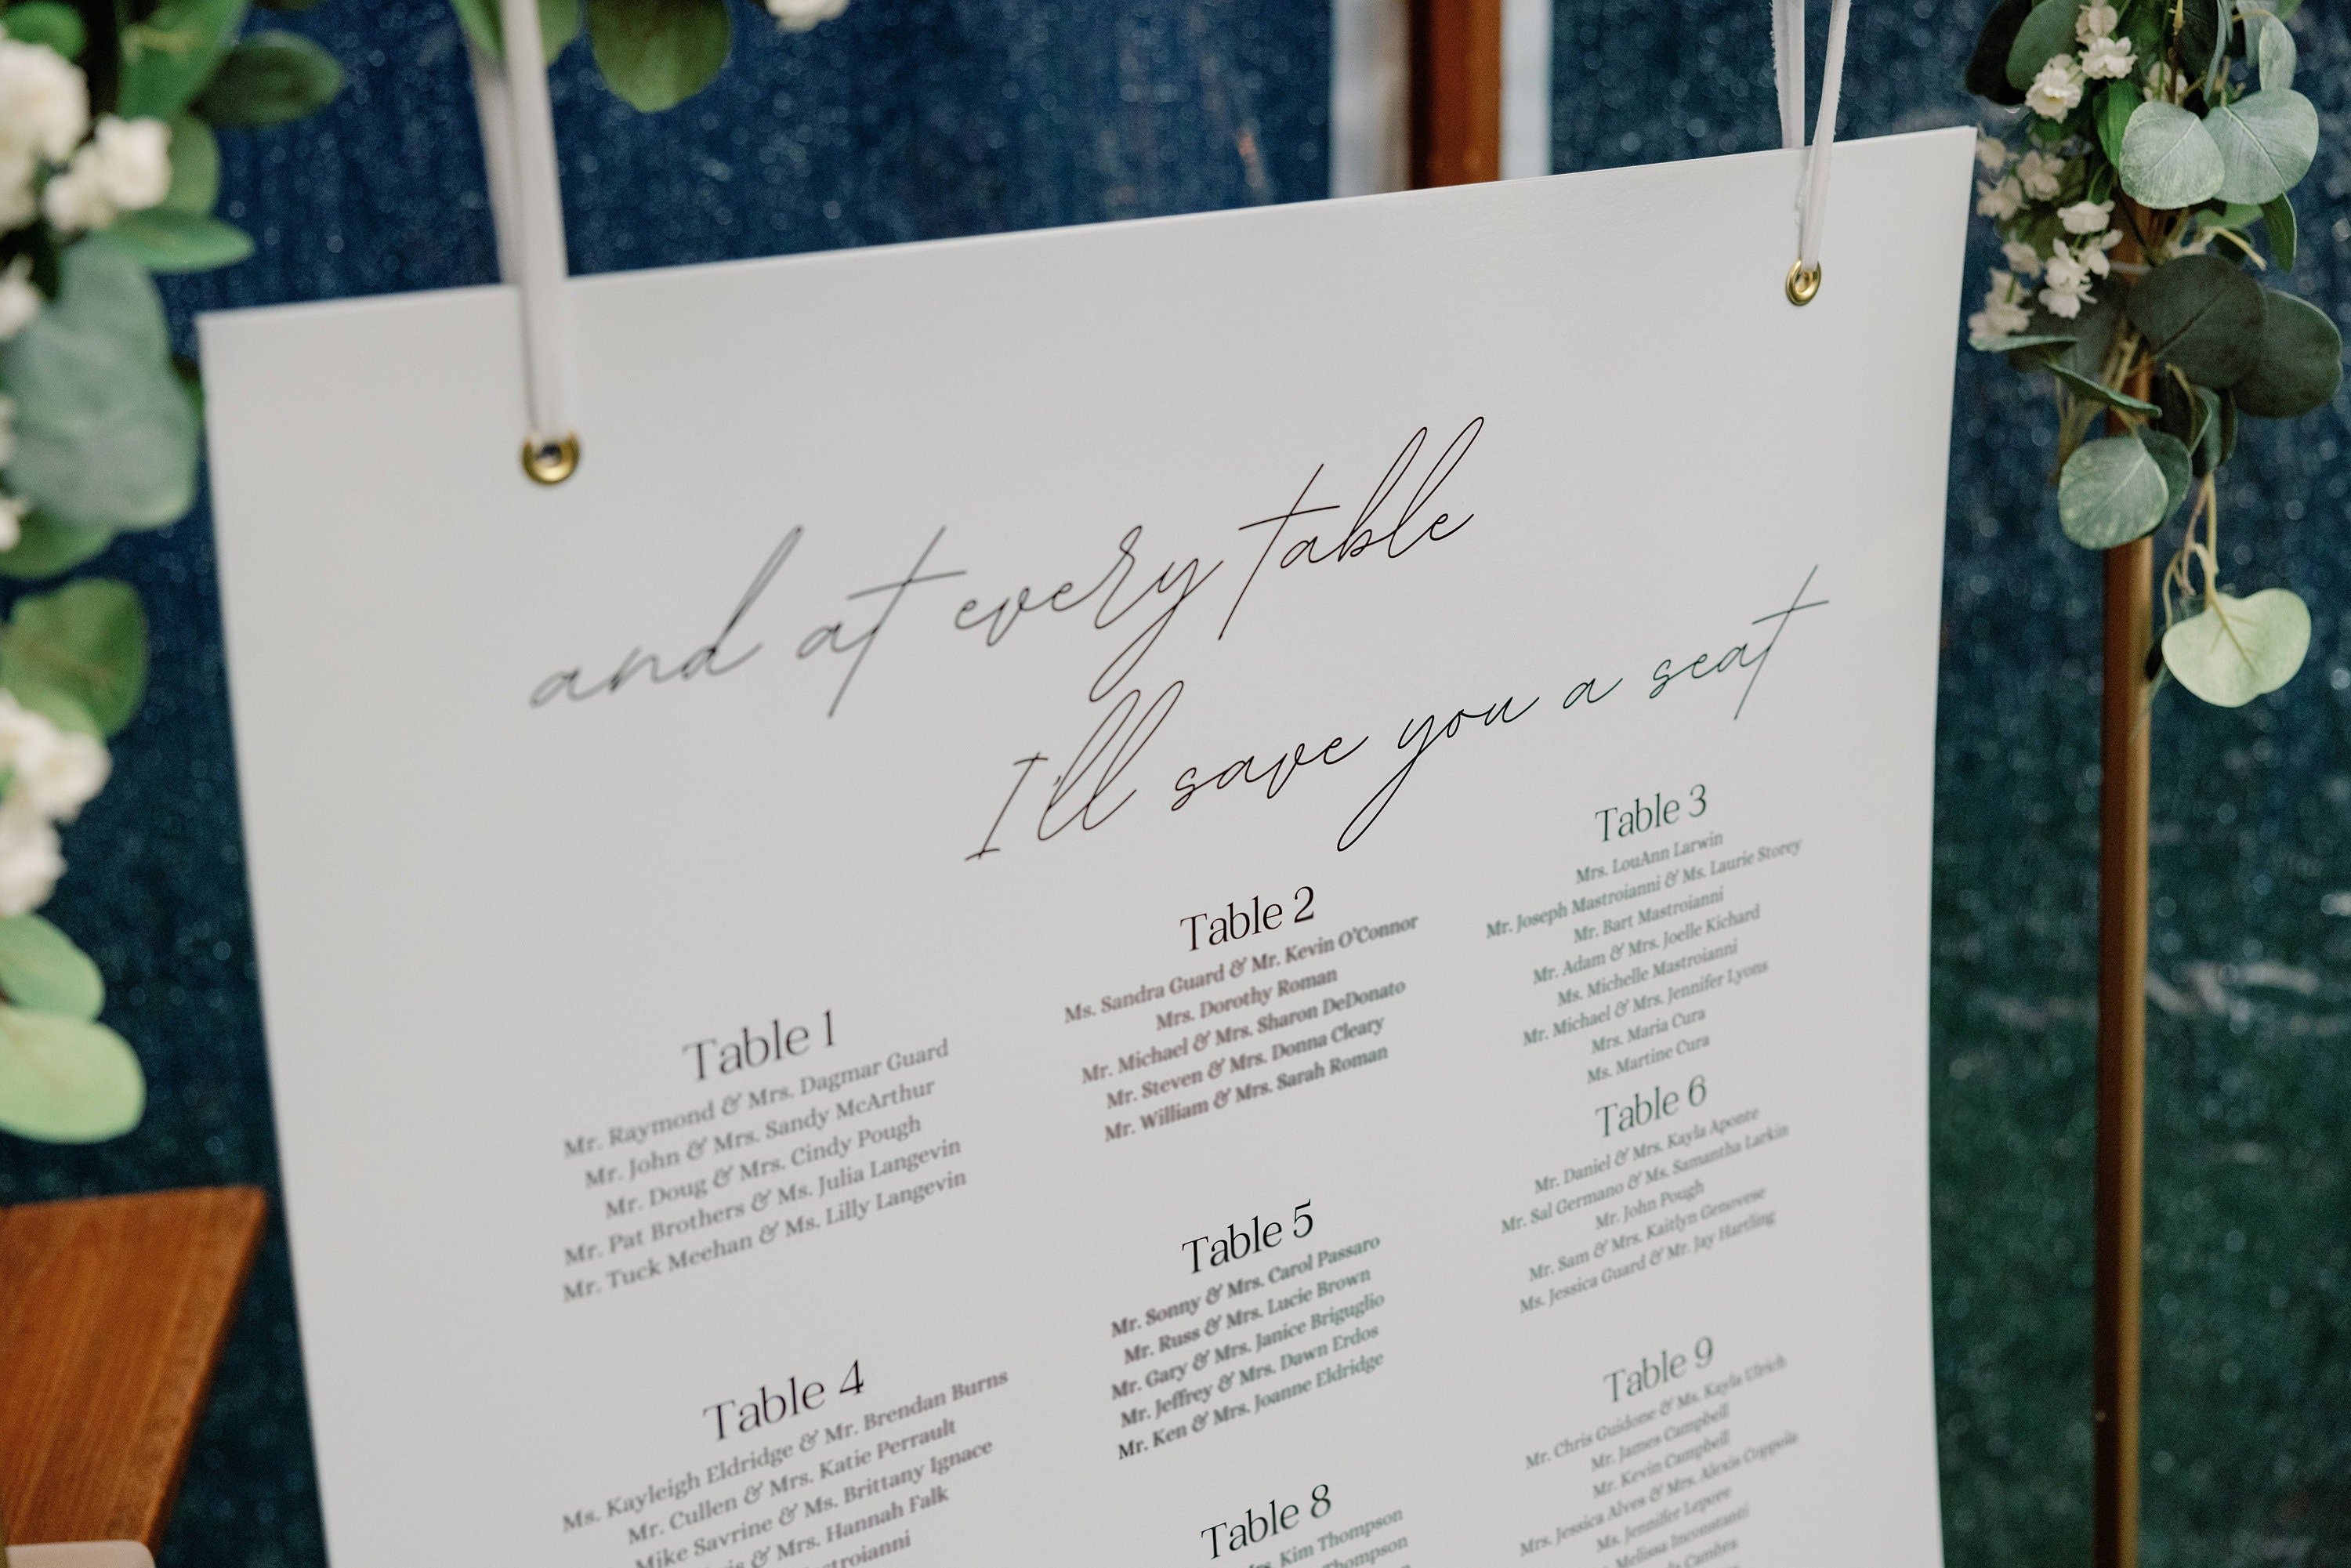 and at every table
I'll save you a seat
Table 1
Mr. Raymond & Mrs. Dagmar Guard
Mr. John & Mrs. Sandy McArthur
Mr. Doug & Mrs. Cindy Pough
Mr. Pat Brothers & Ms. Julia Langevin
Mr. Tuck Meehan & Ms. Lilly Langevin
Table 2
Ms. Sandra Guard & Mr. Kevin O'Connor
Mrs. Dorothy Roman
Mr. Michael & Mrs. Sharon DeDonato
Mr. Steven & Mrs. Donna Cleary
Mr. William & Mrs. Sarah Roman
Table 3
Mrs. LouAnn Larwin
Mr. Joseph Mastroianni & Ms. Laurie Storey
Mr. Bart Mastroianni
Mr. Adam & Mrs. Joelle Kichard
Ms. Michelle Mastroianni
Mr. Michael & Mrs. Jennifer Lyons
Mrs. Maria Cura
Ms. Martine Cura
Table 4
Ms. Kayleigh Eldridge & Mr. Brendan Burns
Mr. Cullen & Mrs. Katie Perrault
Mike Savrine & Ms. Brittany Ignace
& Mrs. Hannah Falk
Table 5
Mr. Sonny & Mrs. Carol Passaro
Mr. Russ & Mrs. Lucie Brown
Mr. Gary & Mrs. Janice Briguglio
Mr. Jeffrey & Mrs. Dawn Erdos
Mr. Ken & Mrs. Joanne Eldridge
Table 6
Mr. Daniel & Mrs. Kayla Aponte
Mr. Sal Germano & Ms. Samantha Larkin
Mr. John Pough
Mr. Sam & Mrs. Kaitlyn Genovese
Ms. Jessica Guard & Mr. Jay Hartling
Table 8
Kim Thompson
Thompson
Table 9
Mr. Chris Guidone & Ms. Kayla Ulrich
Mr. James Campbell
Mr. Kevin Campbell
Mrs. Jessica Alves & Mrs. Alexis Coppola
Ms. Jennifer Lepore
Melissa Inconstanti